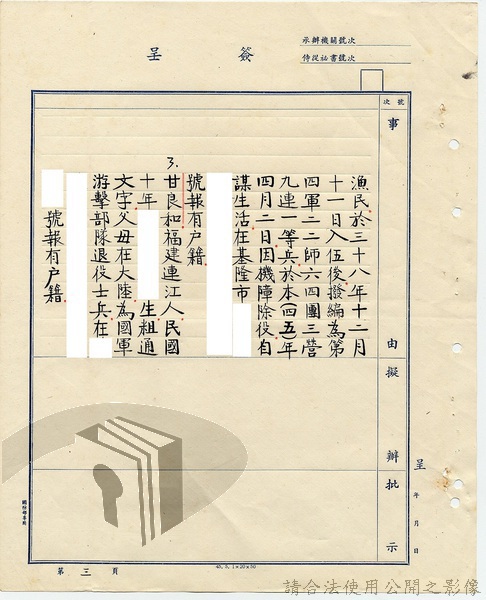 承辦機關號次
侍從祕書號次
簽呈
號次
事由
擬辦
批示
漁民於三十八年十二月
十一日入伍後撥編為第
四軍二二師六四團三營
九連一等兵於本(四五)年
四月二日因機障除役自
謀生活在基隆市
號報有戶籍
3.
甘良和福建連江人民國
十年 生粗通
文字父母在大陸為國軍
游擊部隊退役士兵在
號報有戶籍
呈 年 月 日
第三頁
請合法使用公開之影像